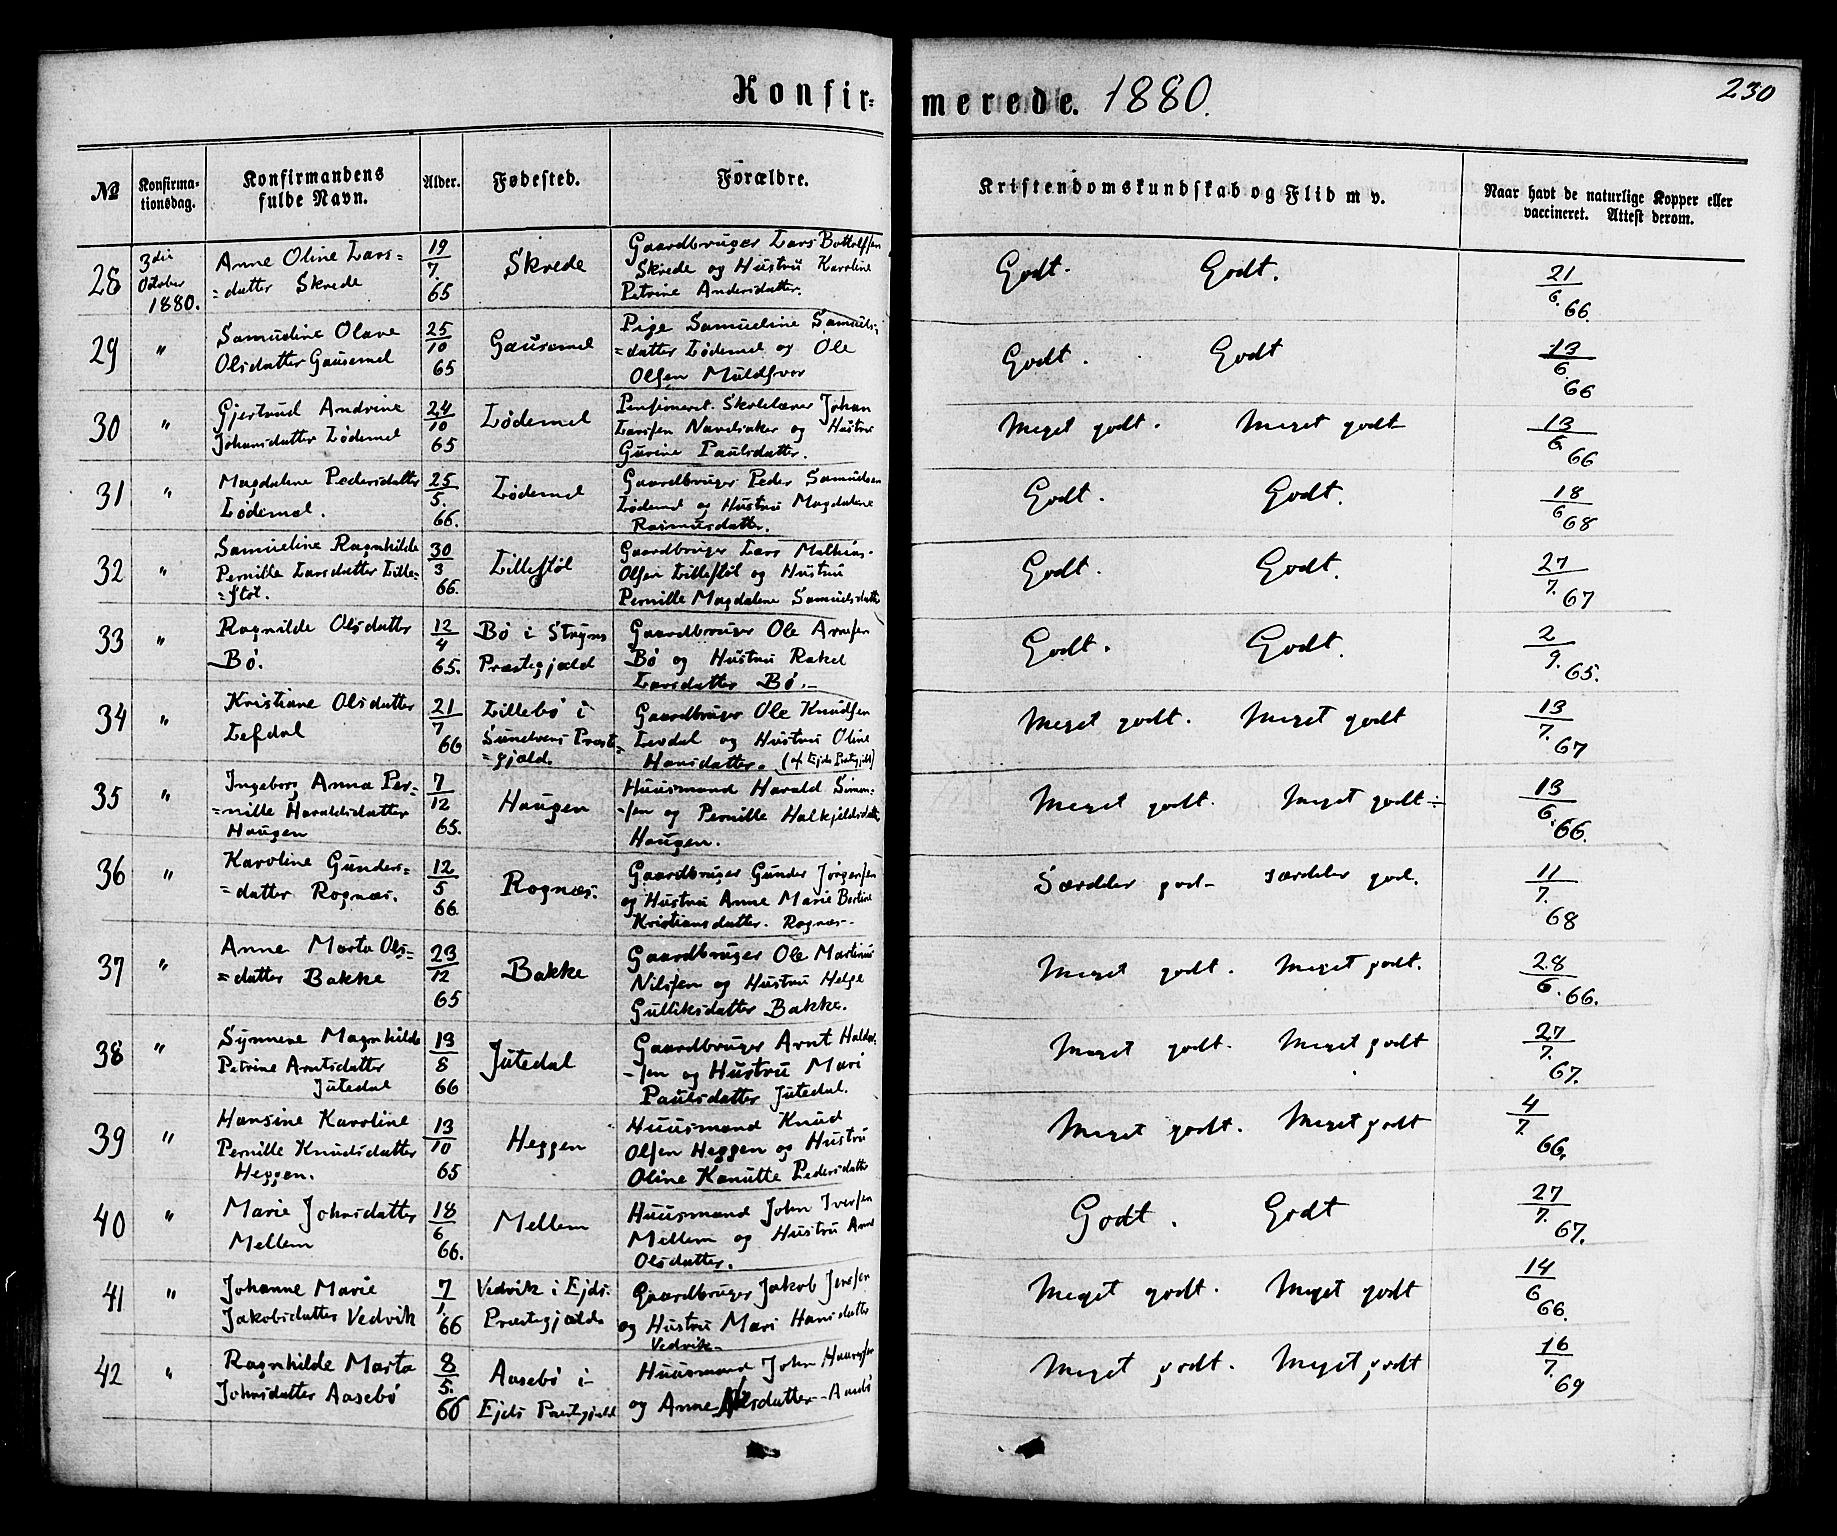 Konfir-merede. 1880.
230
№
Konfirma-
tionsdag.
Konfirmandens
fulde Navn.
Alder.
Fødested.
Forældre.
Kristendomskundskab og Flid m v.
Naar havt de naturlige Kopper eller
vaccineret. Attest derom.
28 3die October 1880. Anne Oline Lars= =datter Skrede 19/7. 65 Skrede Gaardbruger Lars Bottolfsen Skrede og Hustru Karoline Petrine Andersdatter. Godt. Godt. 21/6. 66.
29 " Samueline Olave Olsdatter Gausemel 25/10 65 Gausemel Pige Samueline Samuels- =datter Lødemel og Ole Olsen Muldsvor Godt. Godt 13/6. 66
30 " Gjertrud Andrine Johansdatter Lødemel 24/10 65 Lødemel Pensioneret Skolelærer Johan Larssen Navelsaker og Hustru Gurine Paulsdatter. Meget godt. Meget godt 13/6 66
31 " Magdalene Pedersdatter Lødemel. 25/5. 66. Lødemel Gaardbruger Peder Samuelsen Lødemel og Hustru Magdalene Rasmusdatter. Godt. Godt. 18/6 68
32 " Samueline Ragnhilde Pernille Larsdatter Lille= =støl. 30/3 66. Lillestøl Gaardbruger Lars Mathias- Olsen Lillestøl og Hustru Pernille Magdalene Samuelsdatter Godt. Godt. 27/7. 67
33 " Ragnilde Olsdatter Bø. 12/4 65. Bø i Stryns Præstegjæld Gaardbruger Ole Arnesen Bø og Hustru Rakel Larsdatter Bø.- Godt. Godt. 2/9. 65.
34 " Kristiane Olsdatter Lefdal 21/7 66 Lillebø i Sundvens Præst= =gjæld. Gaardbruger Ole Knudsen Levdal og Hustru Oline Hansdatter. (af Ejds Prstgjld) Meget godt. Meget godt 13/7. 67
35 " Ingeborg Anna Per= =nille Haraldsdatter Haugen 7/12 65. Haugen Huusmand Harald Simon- -sen og Pernille Halkjeldsdatter Haugen. Meget godt. Meget godt 13/6. 66.
36 " Karoline Gunders= =datter Rognæs. 12/5 66. Rognæs. Gaardbruger Gunder Jørgensen og Hustru Anne Marie Bertine Kristiansdatter. Rognæs- Særdeles god- særdeles god. 11/7. 68
37 " Anne Marta Ols= =datter Bakke 23/12 65 Bakke Gaardbruger Ole Martinus Nilssen og Hustru Helge Gulliksdatter Bakke. Meget godt. Meget godt. 28/6. 66.
38 " Synneve Magnhilde Petrine Arntsdatter Jutedal 13/8 66 Jutedal Gaardbruger Arnt Haldor- -sen og Hustru Mari Paulsdatter Jutedal. Meget godt. Meget godt 27/7. 67.
39 " Hansine Karoline Pernille Knudsdatter Heggen. 13/10 65 Heggen Huusmand Knud Olsen Heggen og Hustru Oline Kanutte Pedersdatter Meget godt. Meget godt 4/7. 66.
40 " Marie Johnsdatter Mellem 18/6 66. Mellem Huusmand John Iversen Mellem og Hustru Anne Olsdatter. Godt. Godt 27/7. 67.
41 " Johanne Marie Jakobsdatter Vedvik 7/1. 66 Vedvik i Ejds. Præstegjæld Gaardbruger Jakob Jenssen og Hustru Mari Hansdatter Vedvik- Meget godt. Meget godt 14/6 66.
42 " Ragnhilde Marta Johnsdatter Aasebø 8/5. 66 Aasebø i Ejds Præstgjæld Huusmand John og Anne Olsdatter- Aasebø Meget godt. Meget godt 16/7. 69